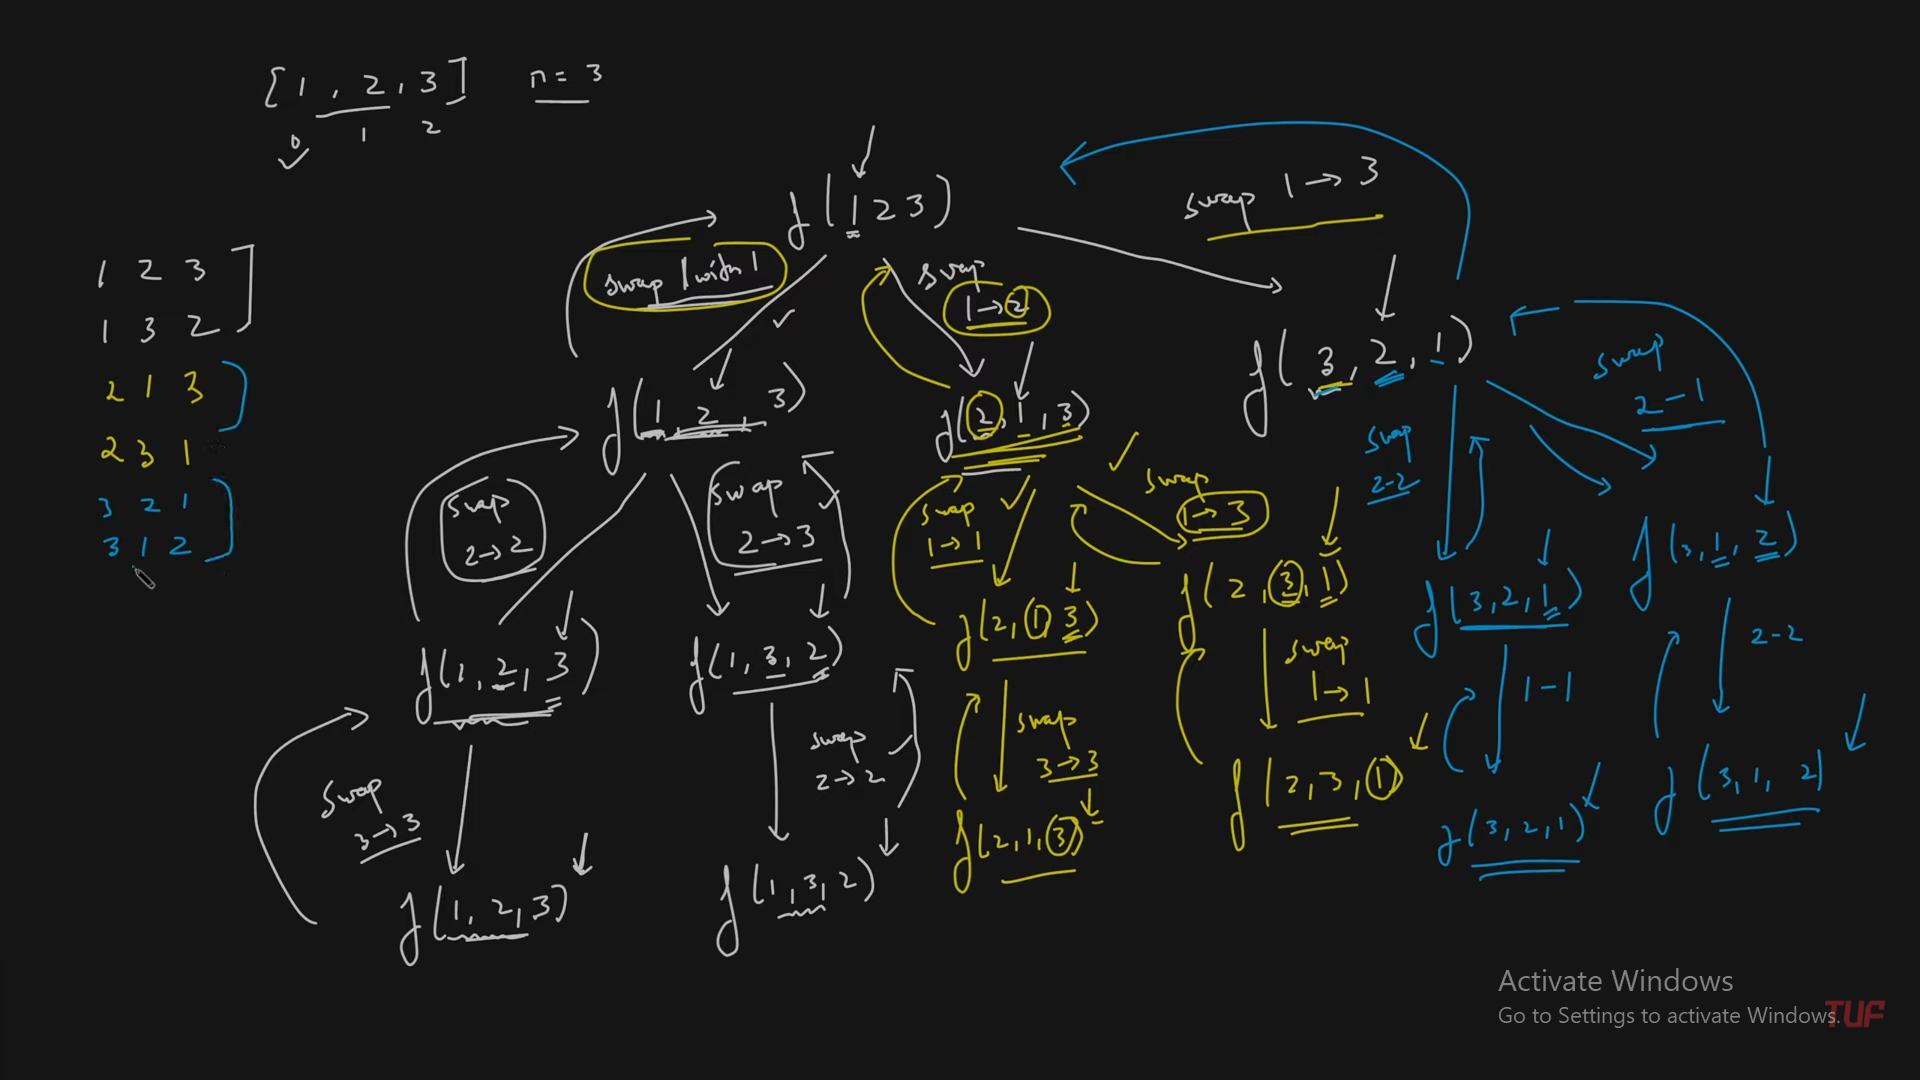 [1, 2, 3] n = 3
0 1 2
f(1 2 3)
swap 1 → 3
swap 1 with 1
swap
1 → 2
1 2 3
1 3 2
2 1 3
2 3 1
3 2 1
3 1 2
f(1, 2, 3)
f(2, 1, 3)
f(3, 2, 1)
swap
2 - 1
swap
2-2
swap
2 → 2
swap
2 → 3
swap
1 → 1
swap
1 → 3
f(1, 2, 3)
f(1, 3, 2)
f(2, 1, 3)
f(2, 3, 1)
f(3, 2, 1)
f(3, 1, 2)
swap
3 → 3
swap
2 → 2
swap
3 → 3
swap
1 → 1
1 - 1
2 - 2
f(1, 2, 3)
f(1, 3, 2)
f(2, 1, 3)
f(2, 3, 1)
f(3, 2, 1)
f(3, 1, 2)
Activate Windows
Go to Settings to activate Windows.
TUF